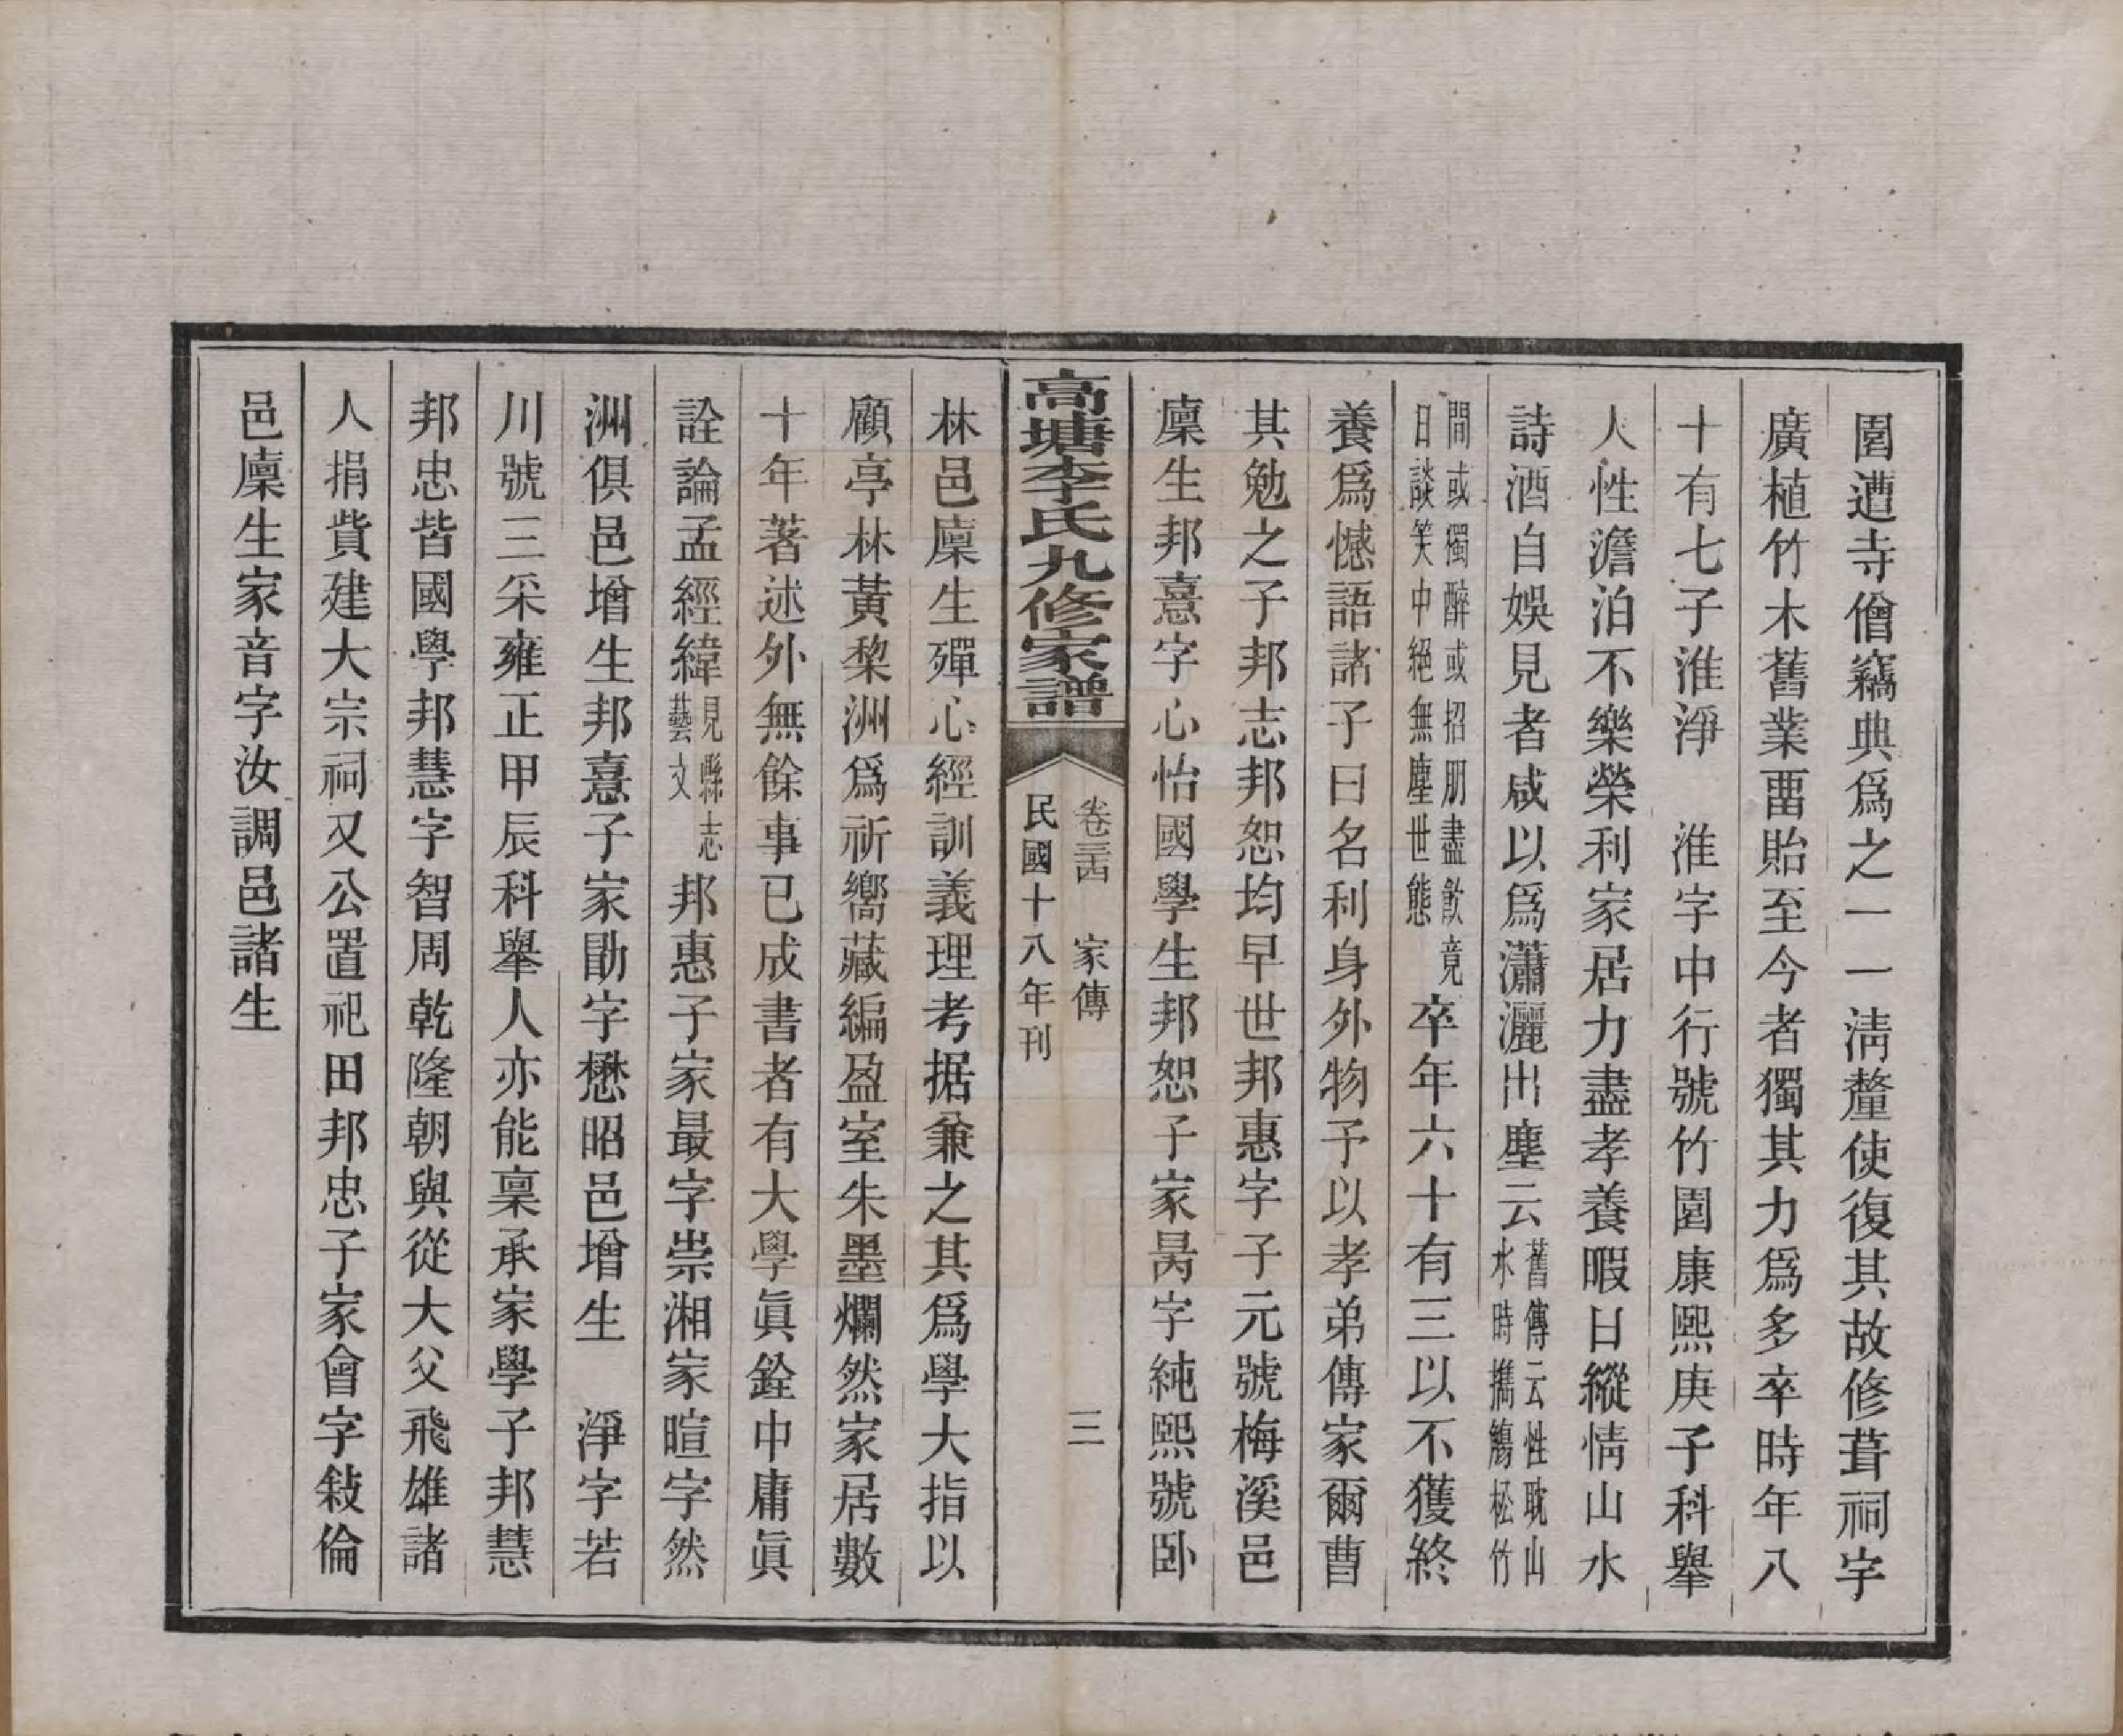 園遭寺僧竊典爲之一一淸釐使復其故修葺祠宇
廣植竹木舊業畱貽至今者獨其力爲多卒時年八
十有七子淮淨　淮字中行號竹園康熙庚子科舉
人性澹泊不樂榮利家居力盡孝養暇日縱情山水
詩酒自娛見者咸以爲瀟灑出塵云舊傳云性耽山水時攜觴松竹
間或獨醉或招朋盡飮竟日談笑中絕無塵世態卒年六十有三以不獲終
養爲憾語諸子曰名利身外物予以孝弟傳家爾曹
其勉之子邦志邦恕均早世邦惠字子元號梅溪邑
廩生邦憙字心怡國學生邦恕子家昺字純熙號卧
高塘李氏九修家譜
卷三四　家傳
三
民國十八年刊
林邑廩生殫心經訓義理考据兼之其爲學大指以
顧亭林黃棃洲爲祈嚮藏編盈室朱墨爛然家居數
十年著述外無餘事已成書者有大學眞銓中庸眞
詮論孟經緯見縣志藝文邦惠子家最字崇湘家暄字然
洲俱邑增生邦憙子家勖字懋昭邑增生　淨字若
川號三采雍正甲辰科舉人亦能稟承家學子邦慧
邦忠皆國學邦慧字智周乾隆朝與從大父飛雄諸
人捐貲建大宗祠又公置祀田邦忠子家會字敍倫
邑廩生家音字汝調邑諸生